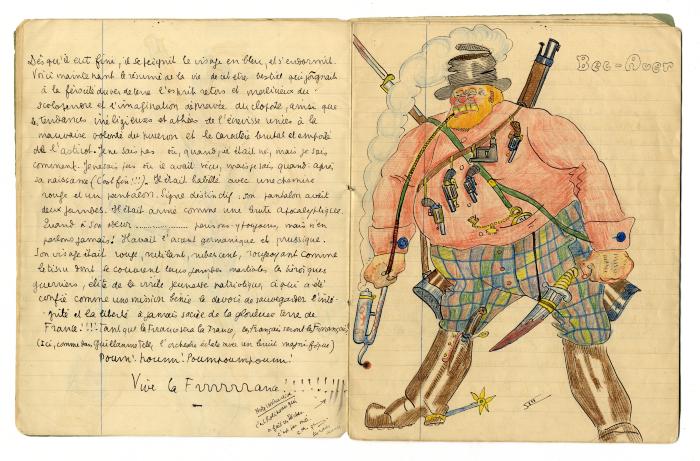 Dès qu'il eut fini, il se peignit le visage en bleu, et s'endormit.
Voici maintenant le résumé de la vie de cet être bestial qui joignait
à la férocité du ver de terre l'esprit retors et marlineux du
scolopendre et l'imagination dépravée du cloporte, ainsi que
les tendances irréligieuses et athées de l'écrevisse unies à la
mauvaise volonté du puceron et le caractère brutal et emporté
de l'asticot. Je ne sais pas où, quand, il était né, mais je sais
comment. Je ne sais pas où il avait vécu, mais je sais quand: après
sa naissance (C'est fin!!!). Il était habillé avec une chemise
rouge et un pantalon. Signe distinctif: son pantalon avait
deux jambes. Il était armé comme une brute apocalyptique.
Quand à son odeur ................ pouïsons-y toujours, mais n'en
parlons jamais! Il avait l'accent germanique et prussique.
Son visage était rouge, rutilant, rubescent, rougeoyant comme
le tissu dont se couvrent leurs jambes martiales, les héroïques
guerriers, élite de la virile jeunesse patriotique, à qui a été
confié comme une mission bénie le devoir de sauvegarder l'inté-
grité et la liberté à jamais sacrée de la glorieuse terre de
France!!!! Tant que la France sera la France, les Français seront les Français,
(Ici, comme dans Guillaume Tell, l'orchestre éclate avec un bruit magnifique)
Poum! Poum! Poumpoumpoum!
Vive la Frrrrrrance!!!!!!!!!!
Bec-Auer